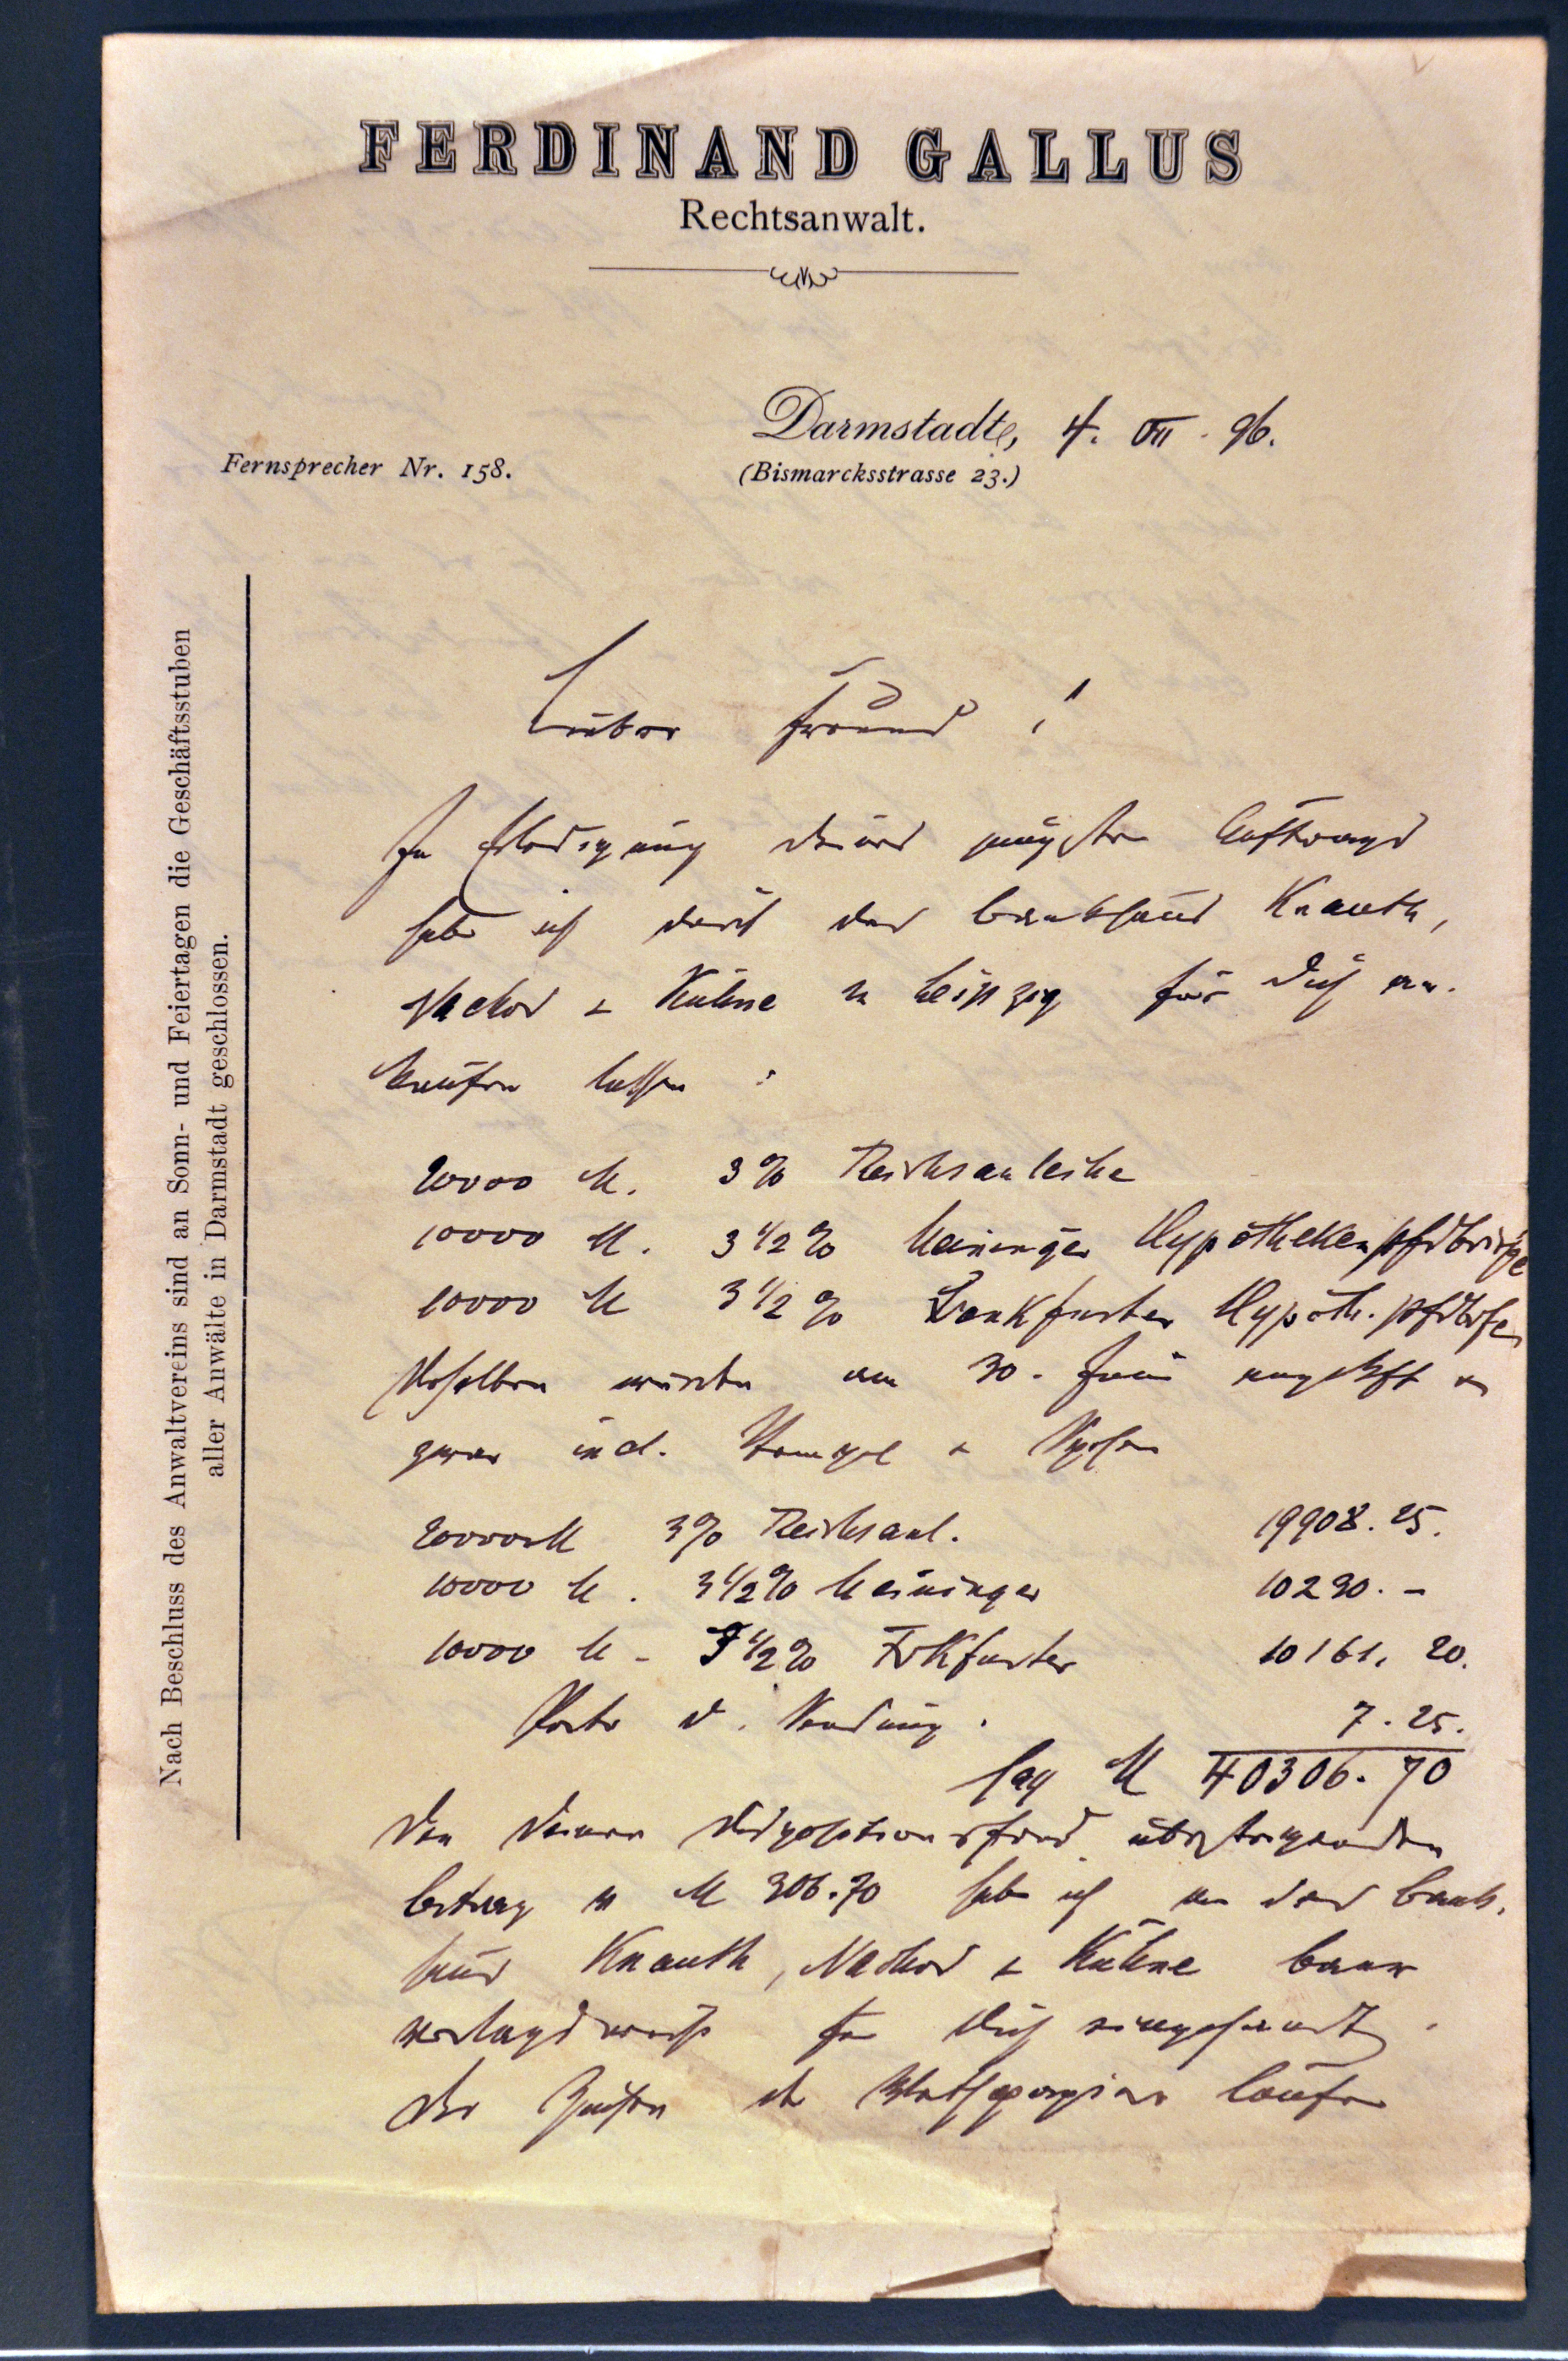 FERDINAND GALLUS
Rechtsanwalt.
Darmstadt, 4. VII. 96.
Fernsprecher Nr. 158.
(Bismarcksstrasse 23.)
Nach Beschluss des Anwaltvereins sind an Sonn- und Feiertagen die Geschäftsstuben
aller Anwälte in Darmstadt geschlossen.
Lieber Freund!
In Erledigung Deines jüngsten Auftrags
habe ich durch das Bankhaus Knauth,
Nachod & Kühne in Leipzig für Dich an-
kaufen lassen:
20000 M. 3% Reichsanleihe
10000 M. 3 1/2% Meininger Hypothekenpfdbriefe
10000 M 3 1/2% Frankfurter Hypoth. pfdbfe
Dieselben wurden am 30. Juni angeschafft u
zwar incl. Stempel & Spesen
20000 M 3% Reichsanl. 19908.25.
10000 M. 3 1/2% Meininger 10230.-
10000 M. 3 1/2% Frkfurter 10161.20.
Porto d. Sendung. 7.25.
sag M 40306.70
Den Deinen Dispositionsfond übersteigenden
Betrag v M 306.70 habe ich an das Bank-
haus Knauth, Nachod & Kühne baar
verlagsweise für Dich eingesandt.
Die Zinsen der Werthpapiere laufen